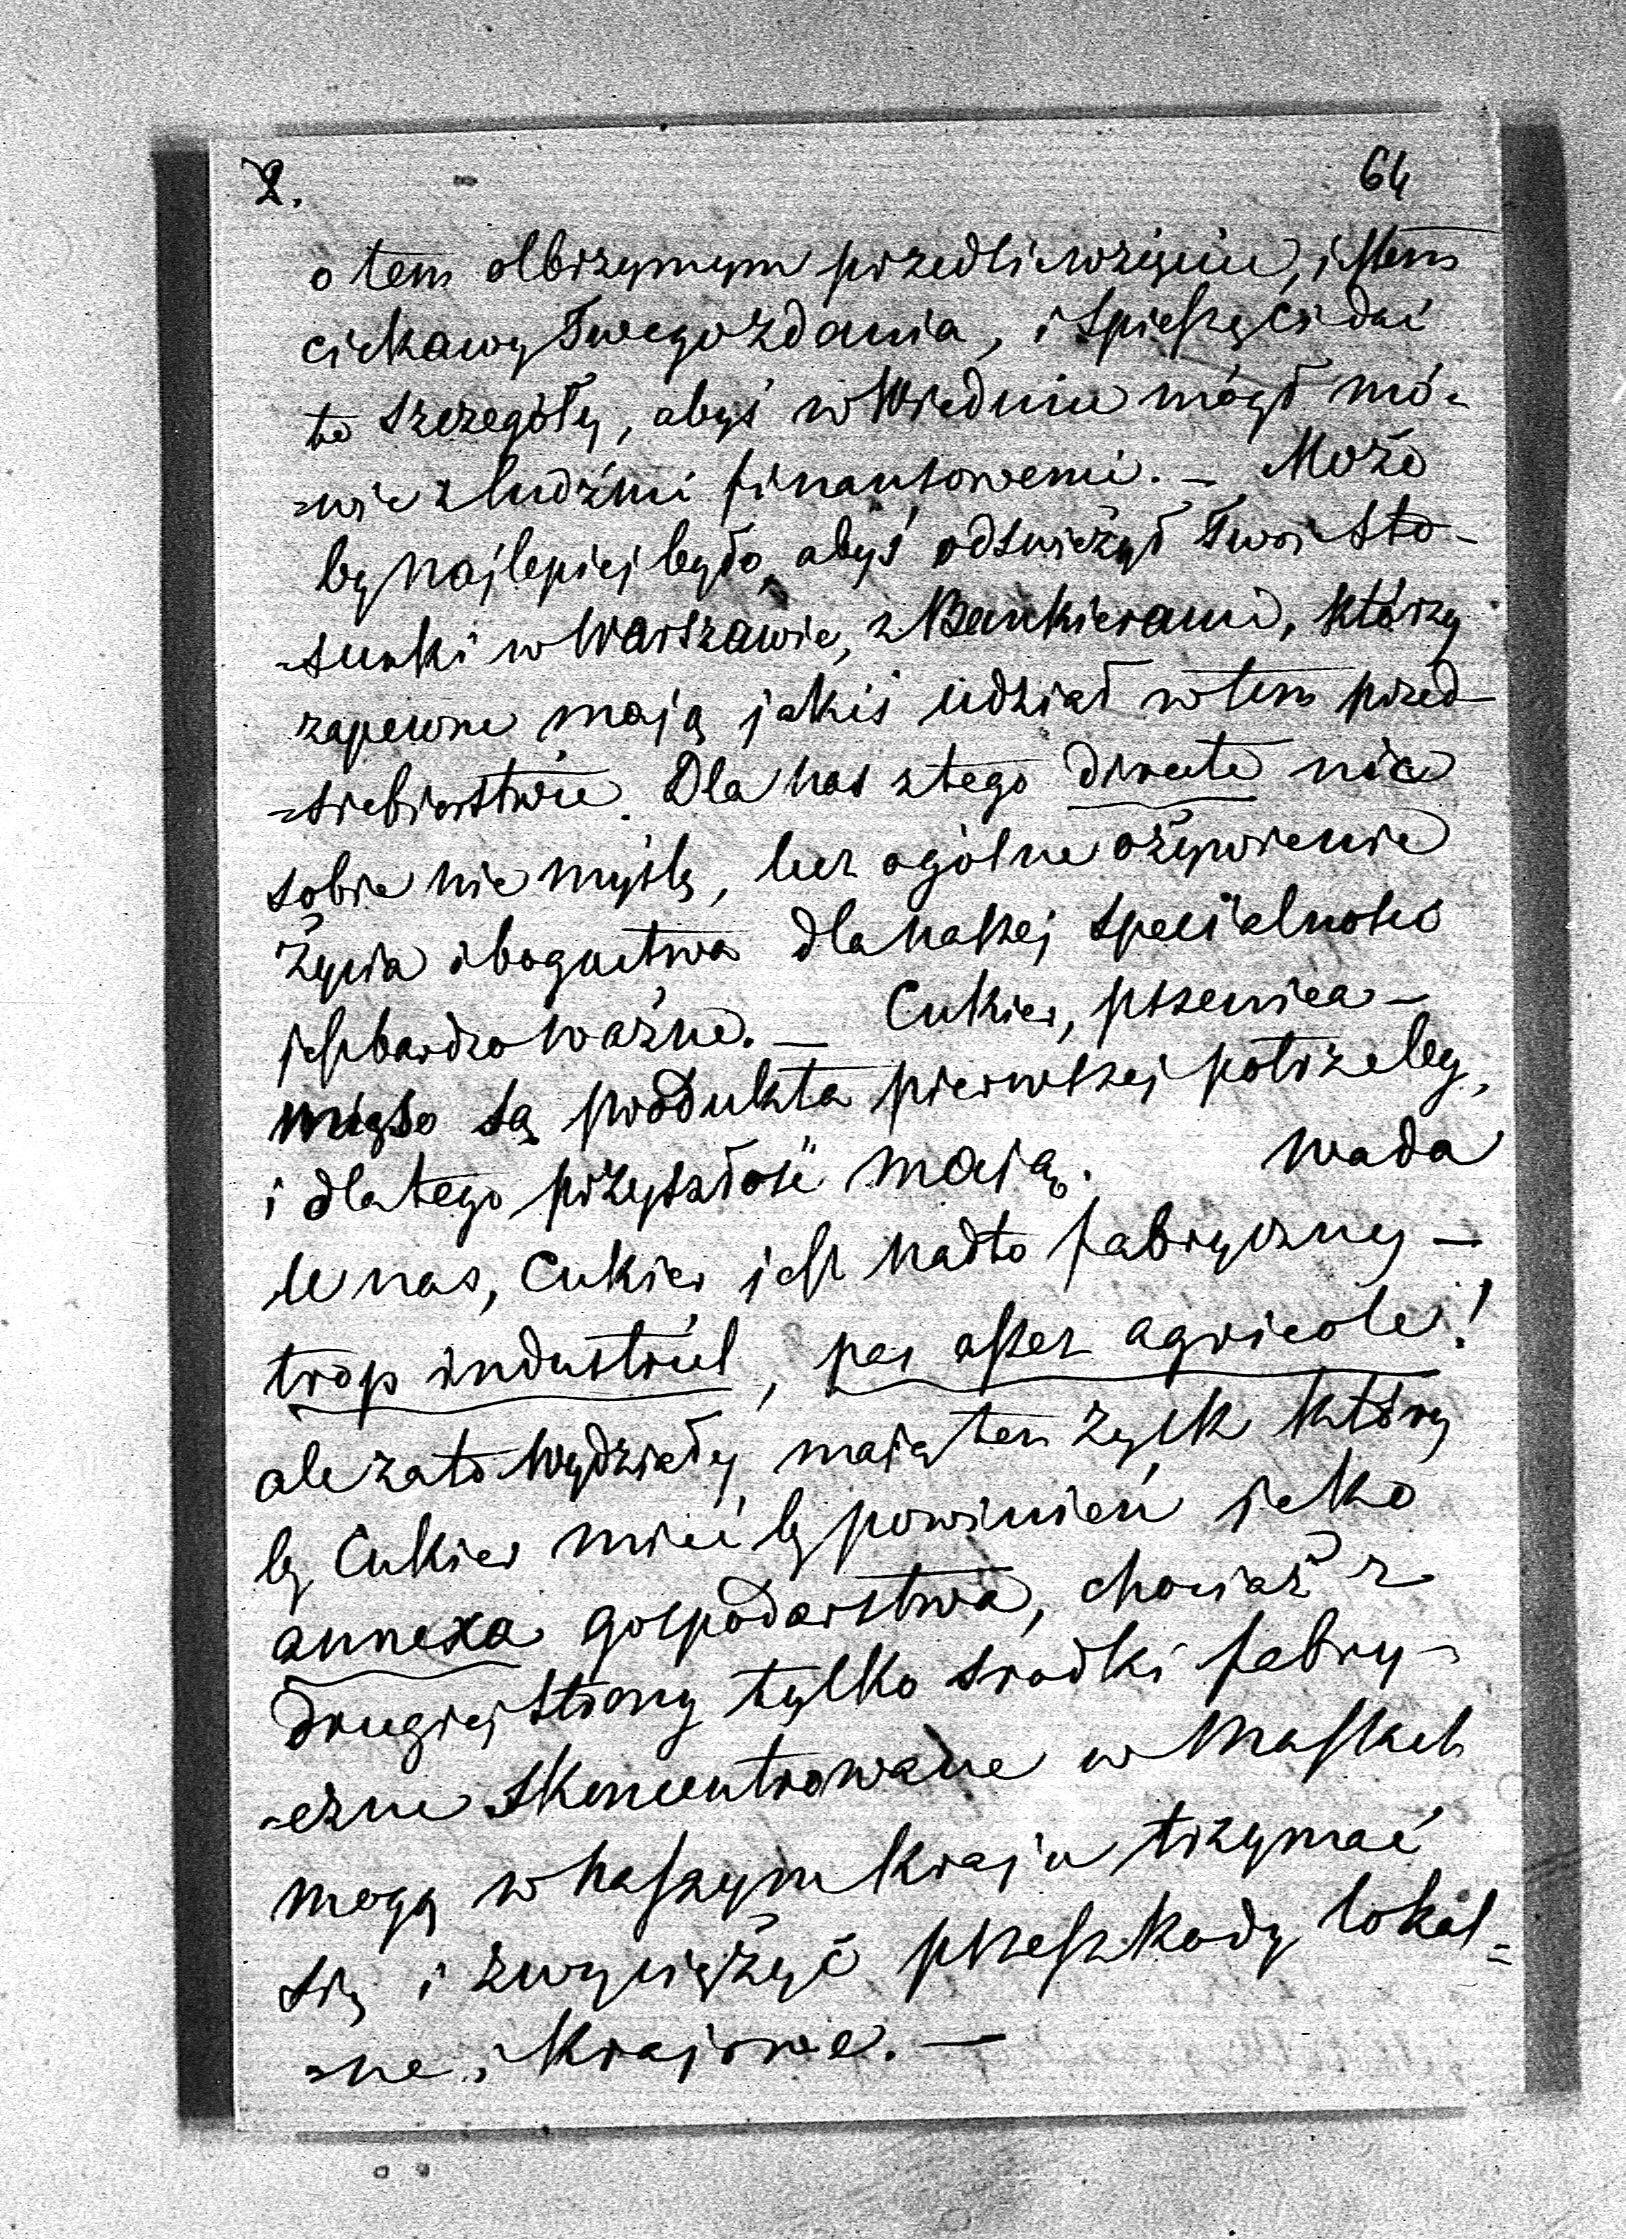 2. 64
o tem olbrzymym przedsięwzięciu, jestem
ciekawy Twego zdania, i spieszę Ci dać
te szczegóły, abyś w Wiedniu mógł mó-
-wić z ludźmi finansowemi. — Może
by najlepiej było, abyś odświeżył Twoje sto-
-sunki w Warszawie, z Bankierami, którzy
zapewne mają jakiś udział w tem przed-
-siebiorstwie. Dla nas z tego directe nic
sobie nie myślę, lecz ogólne ożywienie
życia i bogactwa dla naszej specialności
jest bardzo ważne. — Cukier, pszenica —
mięso są produkta pierwszej potrzeby,
i dlatego przyszłość mają. wada
u nas, Cukier jest nadto fabryczny —
trop industriel, pas assez agricole!
ale zato wydziały mają ten zysk który
by Cukier mieć by powinien jako
annexa gospodarstwa, chociaż z
drugiej strony tylko srodki fabry-
-czne skoncentrowane w massach
mogą w naszym kraju trzymać
się i zwyciężyć przeszkody lokal=
=ne i krajowe. —